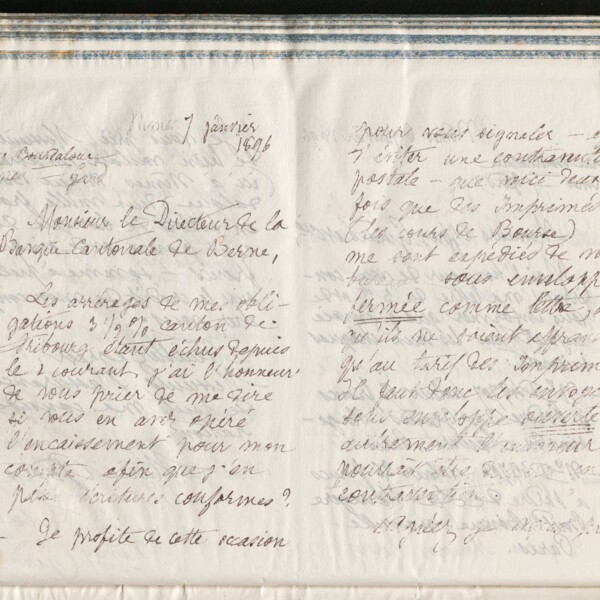 Nimes 7 janvier
1896
Bourdaloue
gard
Monsieur le Directeur de la
Banque Cantonale de Berne,
Les arrerages de mes obli-
gations 3 % canton de
Fribourg étant échus depuis
le 2 courant, j'ai l'honneur
de vous prier de me dire
si vous en avez opéré
l'encaissement pour mon
compte afin que j'en
passe écritures conformes?
- Je profite de cette occasion
pour vous signaler - 
d'éviter une contravent
postale - que voici deux
fois que des Imprimés
(les cours de Bourse)
me sont expédiés de
sous envelopp
fermée comme lettre,
qu'ils ne soient affran
qu'au tarif des Imprim
Il faut donc les envoye
sous enveloppe ouverte
autrement
contravention
Agréez